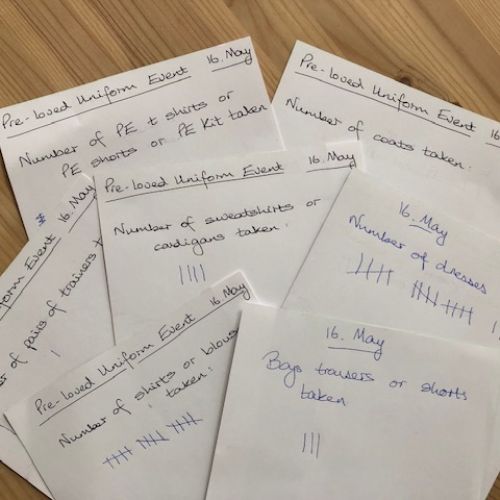 Pre-loved Uniform Event 16. May
Number of PE t shirts or
PE shorts or PE Kit taken
Pre-loved Uniform Event 16
Number of coats taken:
Pre-loved Uniform Event 16. May
Number of sweatshirts or
cardigans taken:
16. May
Number of dresses
Event 16. May
of pairs of trainers
Pre-loved Uniform Event 16. May
Number of shirts or
taken:
16. May
Boys trousers or shorts
taken